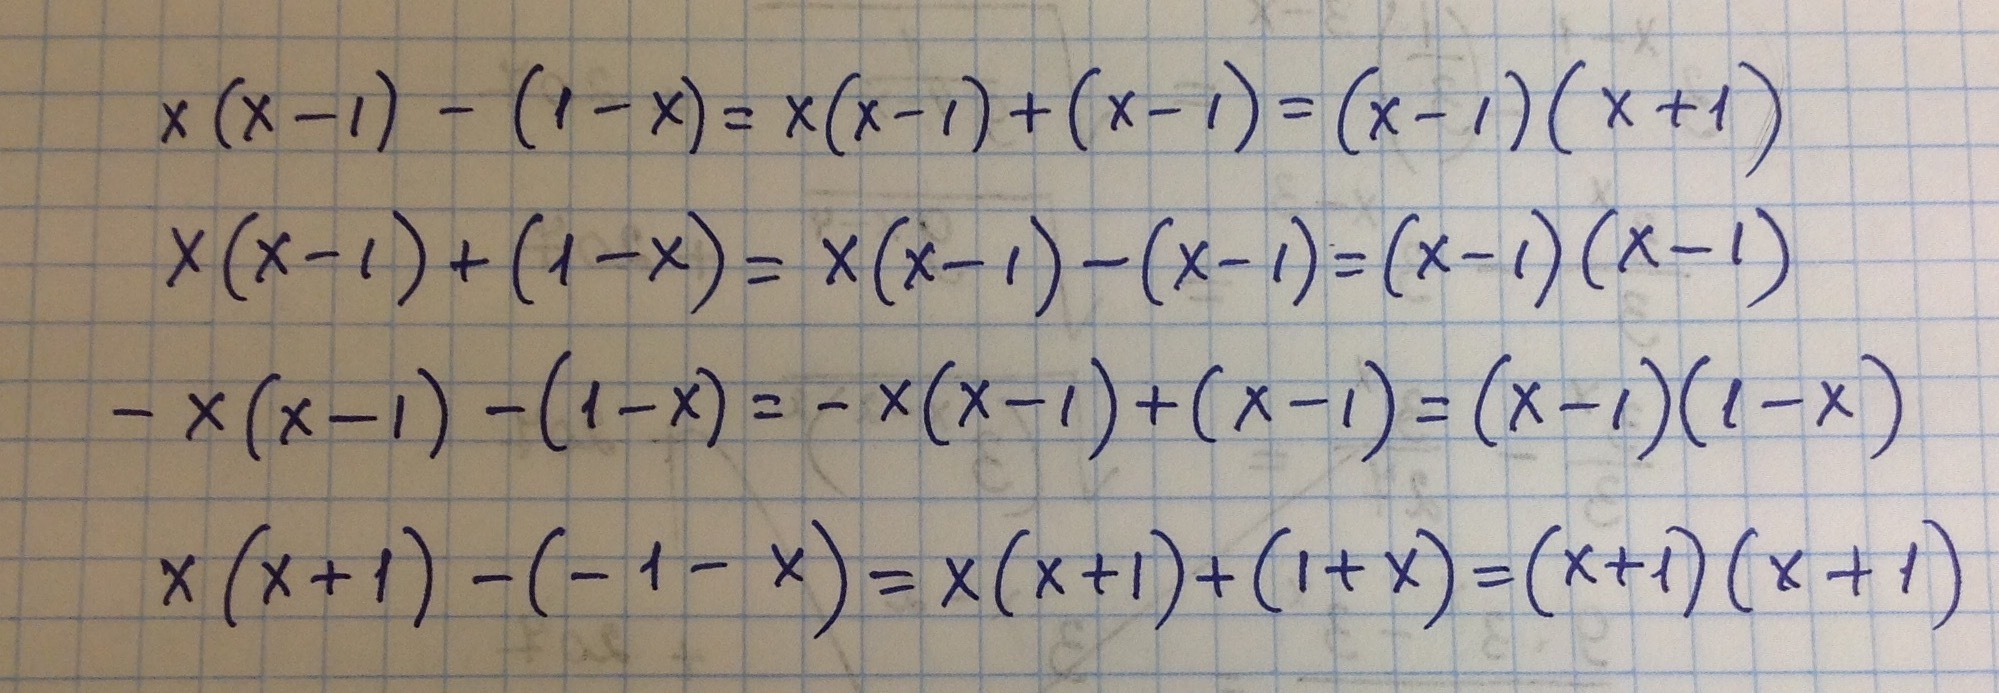 x(x-1) - (1-x) = x(x-1) + (x-1) = (x-1)(x+1)
x(x-1) + (1-x) = x(x-1) - (x-1) = (x-1)(x-1)
-x(x-1) - (1-x) = -x(x-1) + (x-1) = (x-1)(1-x)
x(x+1) - (-1-x) = x(x+1) + (1+x) = (x+1)(x+1)